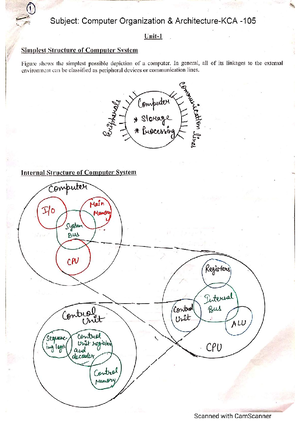 1
Subject: Computer Organization & Architecture-KCA -105
Unit-1
Simplest Structure of Computer System
Figure shows the simplest possible depiction of a computer. In general, all of its linkages to the external
environment can be classified as peripheral devices or communication lines.
Peripherals
Computer
* Storage
* Processing
Communication
lines
Internal Structure of Computer System
Computer
I/O
Main
Memory
System
Bus
CPU
Registers
Internal
Bus
Control
Unit
ALU
CPU
Control
Unit
Sequen
cing logic
Control
unit registers
and
decoder
Control
Memory
Scanned with CamScanner